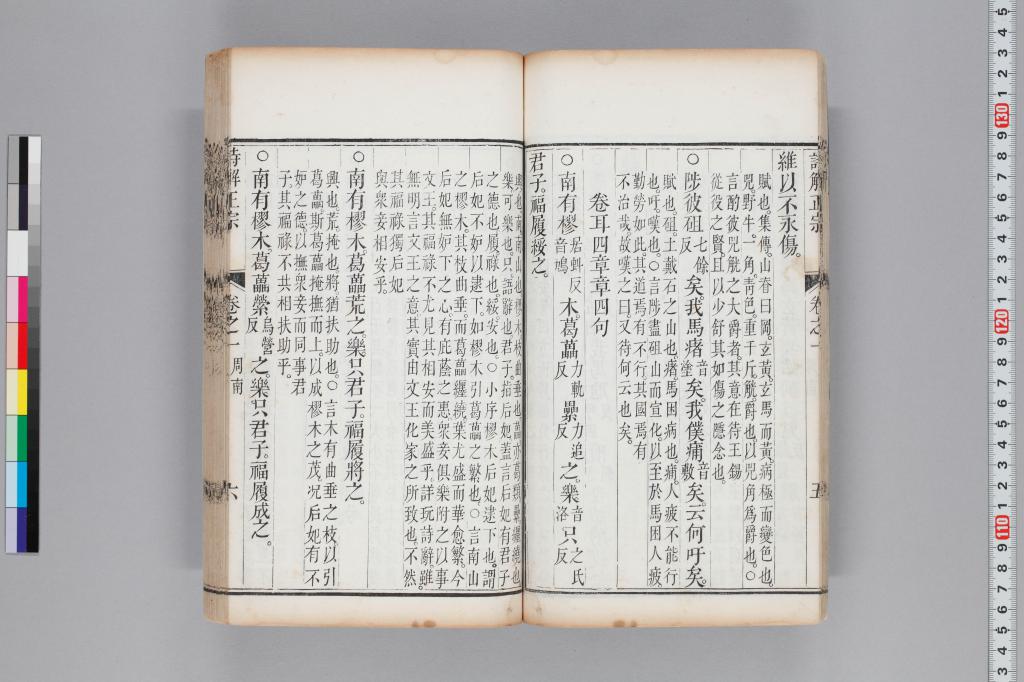 維以不永傷。
賦也集傳。山脊曰岡。玄黃。玄馬而黃。病極而變色也。
兕。野牛。一角。青色。重千斤。觥爵也。以兕角爲爵也。○
言酌彼兕觥之大爵者。其意在待王錫
從役之賢。且以少舒其如傷之懸念也。
○陟彼砠七餘反矣。我馬瘏音塗矣。我僕痡音敷矣。云何吁矣。
賦也。砠。土戴石之山也。瘏。馬困病也。痡。人疲不能行
也。吁。嘆也。○言陟盡砠山而宣化。以至於馬困人疲。
勤勞如此。其道焉有不行。其國焉有
不治哉。故嘆之曰。又待何云也矣。
卷耳四章章四句
○南有樛居虯反音鳩木。葛藟力軌反纍力追反之。樂音洛只之氏反
君子。福履綏之。
興也。南。南山也。
樂。可樂也。只。語辭也。君子。指后妃。蓋言后妃有君子
之德也。履。祿也。綏。安也。○小序樛木后妃逮下也。謂
后妃不妒以逮下。如樛木引葛藟之繁也。○言南山
之樛木。其枝曲垂。而葛藟纏繞。葉尤盛而華愈繁。今
后妃無妒下之心。有庇蔭之惠。衆妾俱樂附之以事
文王。其福祿不尤見其相安而美盛乎。詳玩詩辭。雖
無明言文王之意。其實由文王化家之所致也。不然
其福祿獨后妃
與衆妾相安乎。
○南有樛木。葛藟荒之。樂只君子。福履將之。
興也。荒。掩也。將。猶扶助也。○言木有曲垂之枝以引
葛藟。斯葛藟掩撫而上。以成樛木之茂。况后妃有不
妒之德。以撫衆妾而同事君
子。其福祿不共相扶助乎。
○南有樛木。葛藟縈烏營反之。樂只君子。福履成之。
詩解正宗
卷之一
周南
六